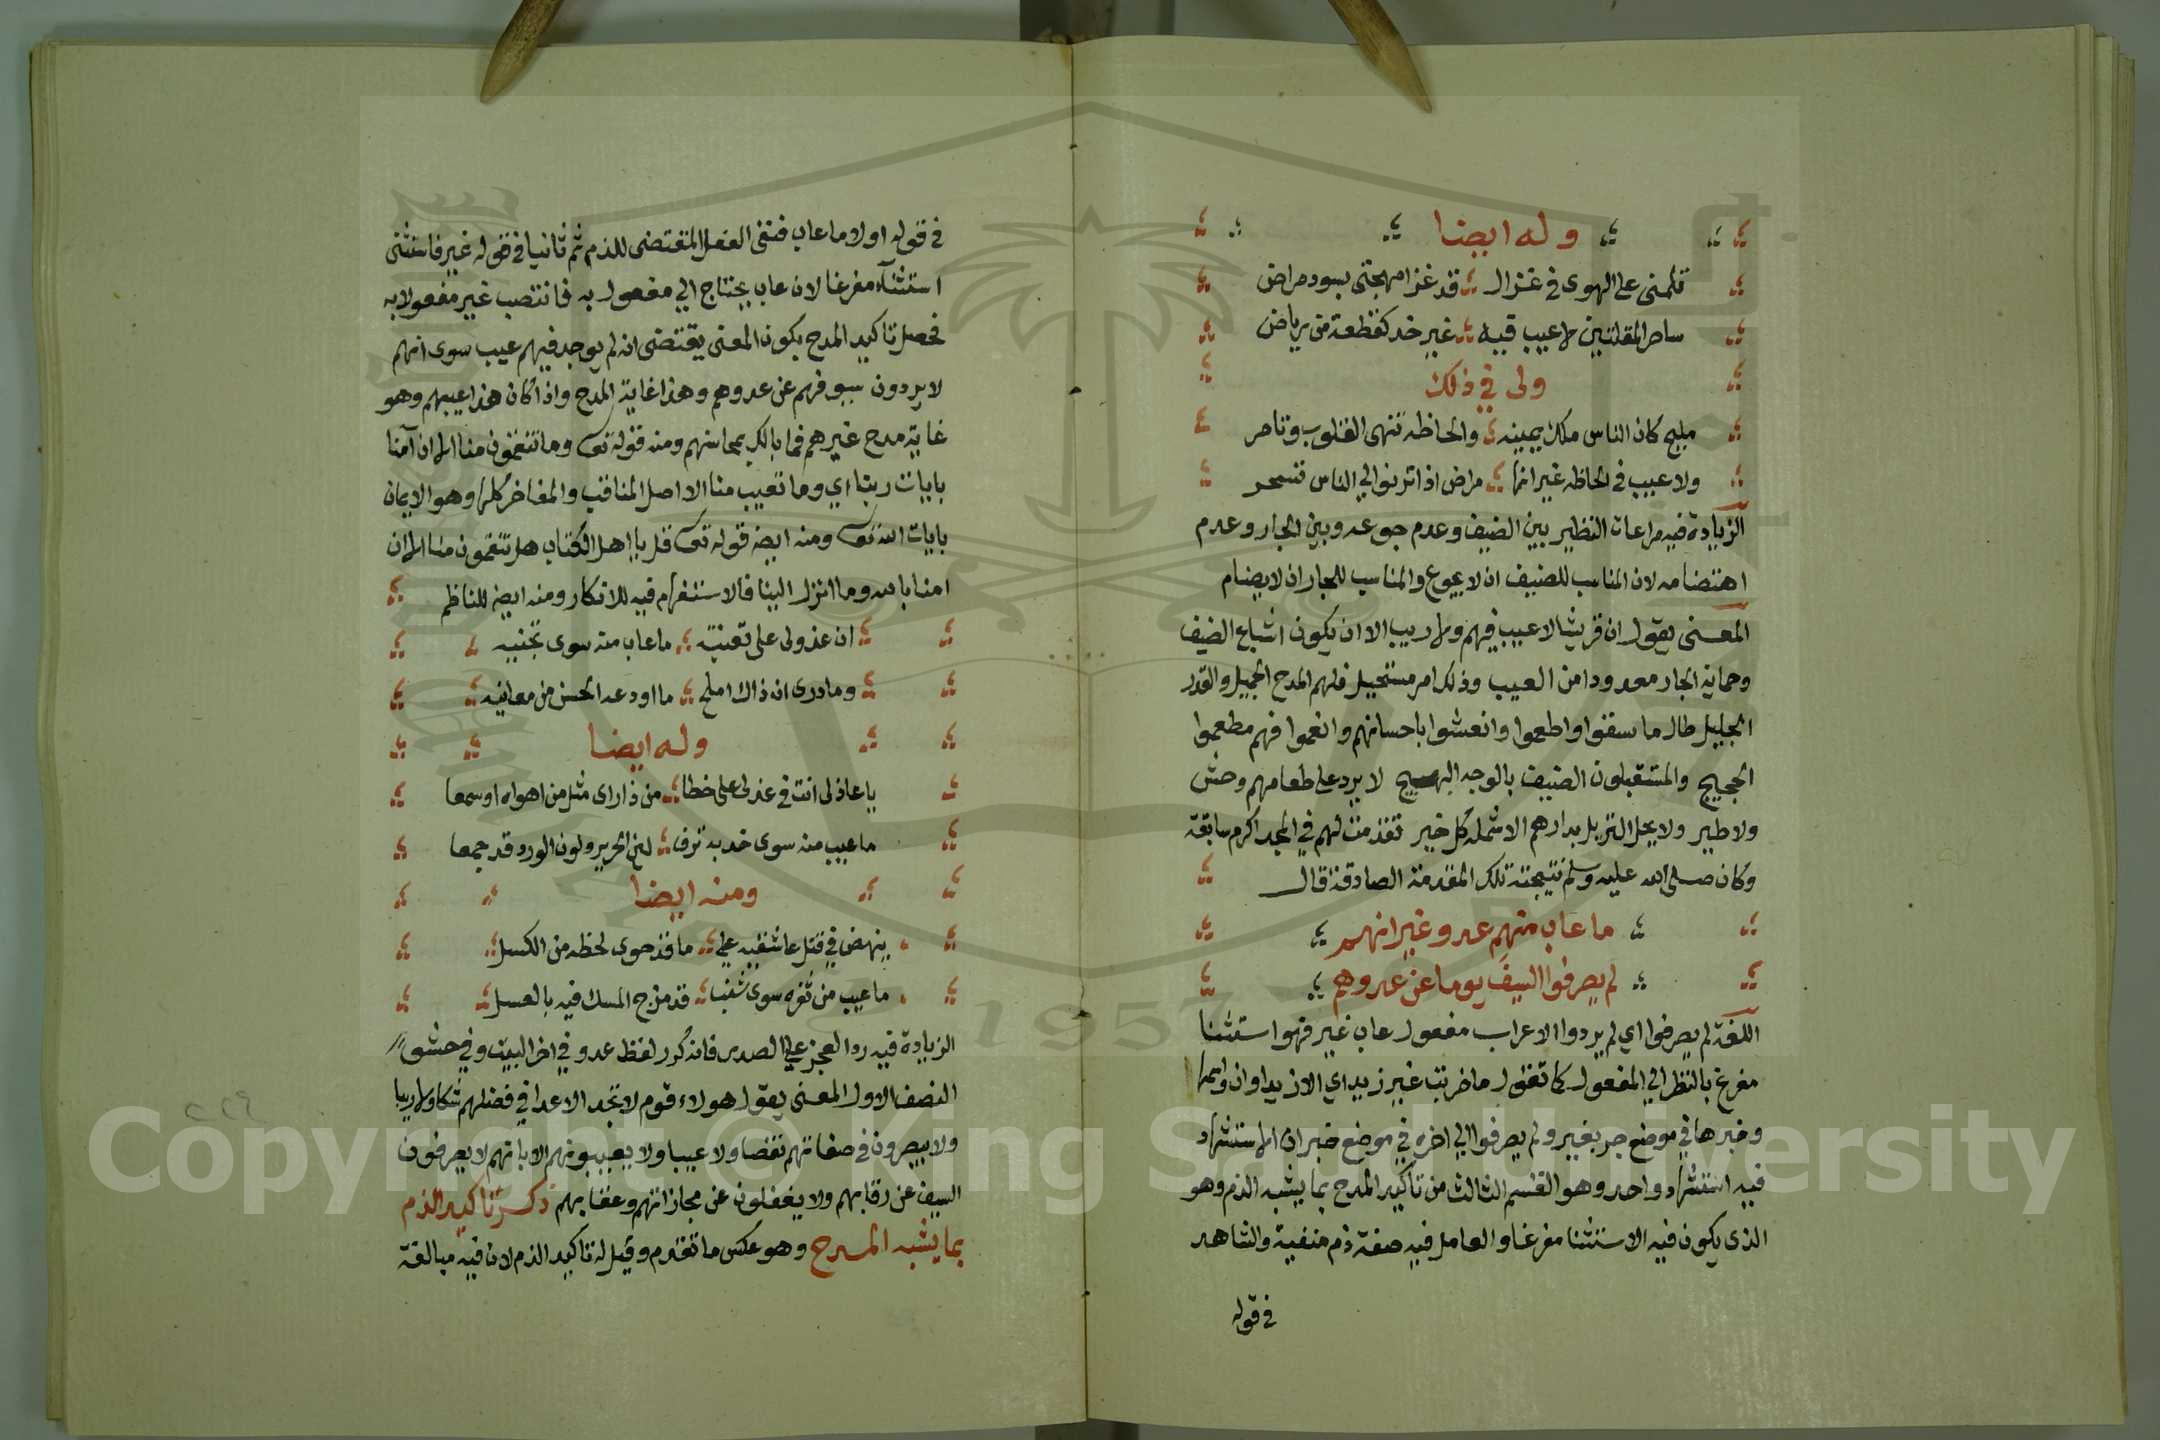 وله ايضا
قلمنى على الهوى فى غزال قد غزا مهجتى بسود مراض
ساحر المقلتين لا عيب فيه غير خد كقطعة من رياض
ولى في ذلك
مليح كان الناس ملك يمينه والحاظه تنهى القلوب وتامر
ولا عيب فى الحاظه غير انها مراض اذا ترنوا الي الناس تسحر
الزيادة فيه مراعات النظير بين الضيف وعدم جوعه وبين الجار وعدم
اهتضامه لان المناسب للضيف ان لا يجوع والمناسب للجار ان لا يضام
المعنى يقول ان قريشا لا عيب فيهم ولا ريب الا ان يكون اشباع الضيف
وحماية الجار معدودا من العيب وذلك امر مستحيل فلهم المدح الجميل والقدر
الجليل طال ما سقوا واطعموا وانعشوا باحسانهم وانعموا فهم مطعموا
الحجيج والمستقبلون الضيف بالوجه البهيج لا يرد على طعامهم وحش
ولا طير ولا يحل النزيل بدارهم الا شمله كل خير تقدمت لهم في المجد اكرم سابقة
وكان صلى الله عليه وسلم نتيجة تلك المقدمة الصادقة قال
ما عاب منهم عدو غير انهم
لم يصرفوا السيف يوما عن عدوهم
اللغة لم يصرفوا اي لم يردوا الاعراب مفعول عاب غير فهو استثنا
مفرغ بالنظر الي المفعول كما تقول ما ضربت غير زيد اي الا زيدا وان واسمها
وخبرها في موضع جر بغير ولم يصرفوا الي اخره في موضع خبر ان الاستشهاد
فيه استشهاد واحد وهو القسم الثالث من تاكيد المدح بما يشبه الذم وهو
الذى يكون فيه الاستثنا مفرغا والعامل فيه صفة ذم منفية والشاهد
فى قوله
فى قوله اولا ما عاب فنفى الفعل المقتضى للذم ثم ثانيا في قوله غير فاستثنى
استثنآء مفرغا لان عاب يحتاج الي مفعول به فانتصب غير مفعولا به
فحصل تاكيد المدح بكون المعنى يقتضى انه لم يوجد فيهم عيب سوى انهم
لا يردون سيوفهم عن عدوهم وهذا غاية المدح واذا كان هذا عيبهم وهو
غاية مدح غيرهم فما بالك بمحاسنهم ومنه قوله تعـ وما تنقمون منا الا ان آمنا
بايات ربنا اي وما تعيب منا الا اصل المناقب والمفاخر كلها وهو الايمان
بايات الله تعـ ومنه ايضا قوله تعـ قل يا اهل الكتاب هل تنقمون منا الا ان
امنا بالله وما انزل الينا فالاستفهام فيه للانكار ومنه ايضا للناظم
ان عذولى على تعنته ما عاب منه سوى تجنيه
وما درى ان ذاك املح ما اودعه الحسن من معانيه
وله ايضا
يا عاذلى انت فى عذلى على خطا من ذا راى مثل من اهواه او سمعا
ما عيب منه سوى خد به ترف لين الحرير ولون الورد قد جمعا
ومنه ايضا
ينهض في قتل عاشقيه على ما قد حوى لحظه من الكسل
ما عيب من ثغره سوى شنب قد مزج المسك فيه بالعسل
الزيادة فيه رد العجز على الصدر فانه كرر لفظ عدو في اخر البيت وفي حشو
النصف الاول المعنى يقول هولاء قوم لا تجد الاعدا في فضلهم شكا ولا ريبا
ولا يبصرون فى صفاتهم نقصا ولا عيبا ولا يعيبونهم الا بانهم لا يصرفون
السيف عن رقابهم ولا يغفلون عن مجازاتهم وعقابهم ذكر تاكيد الذم
بما يشبه المدح وهو عكس ما تقدم وقيل له تاكيد الذم لان فيه مبالغة
Copyright © King Saud University
1957